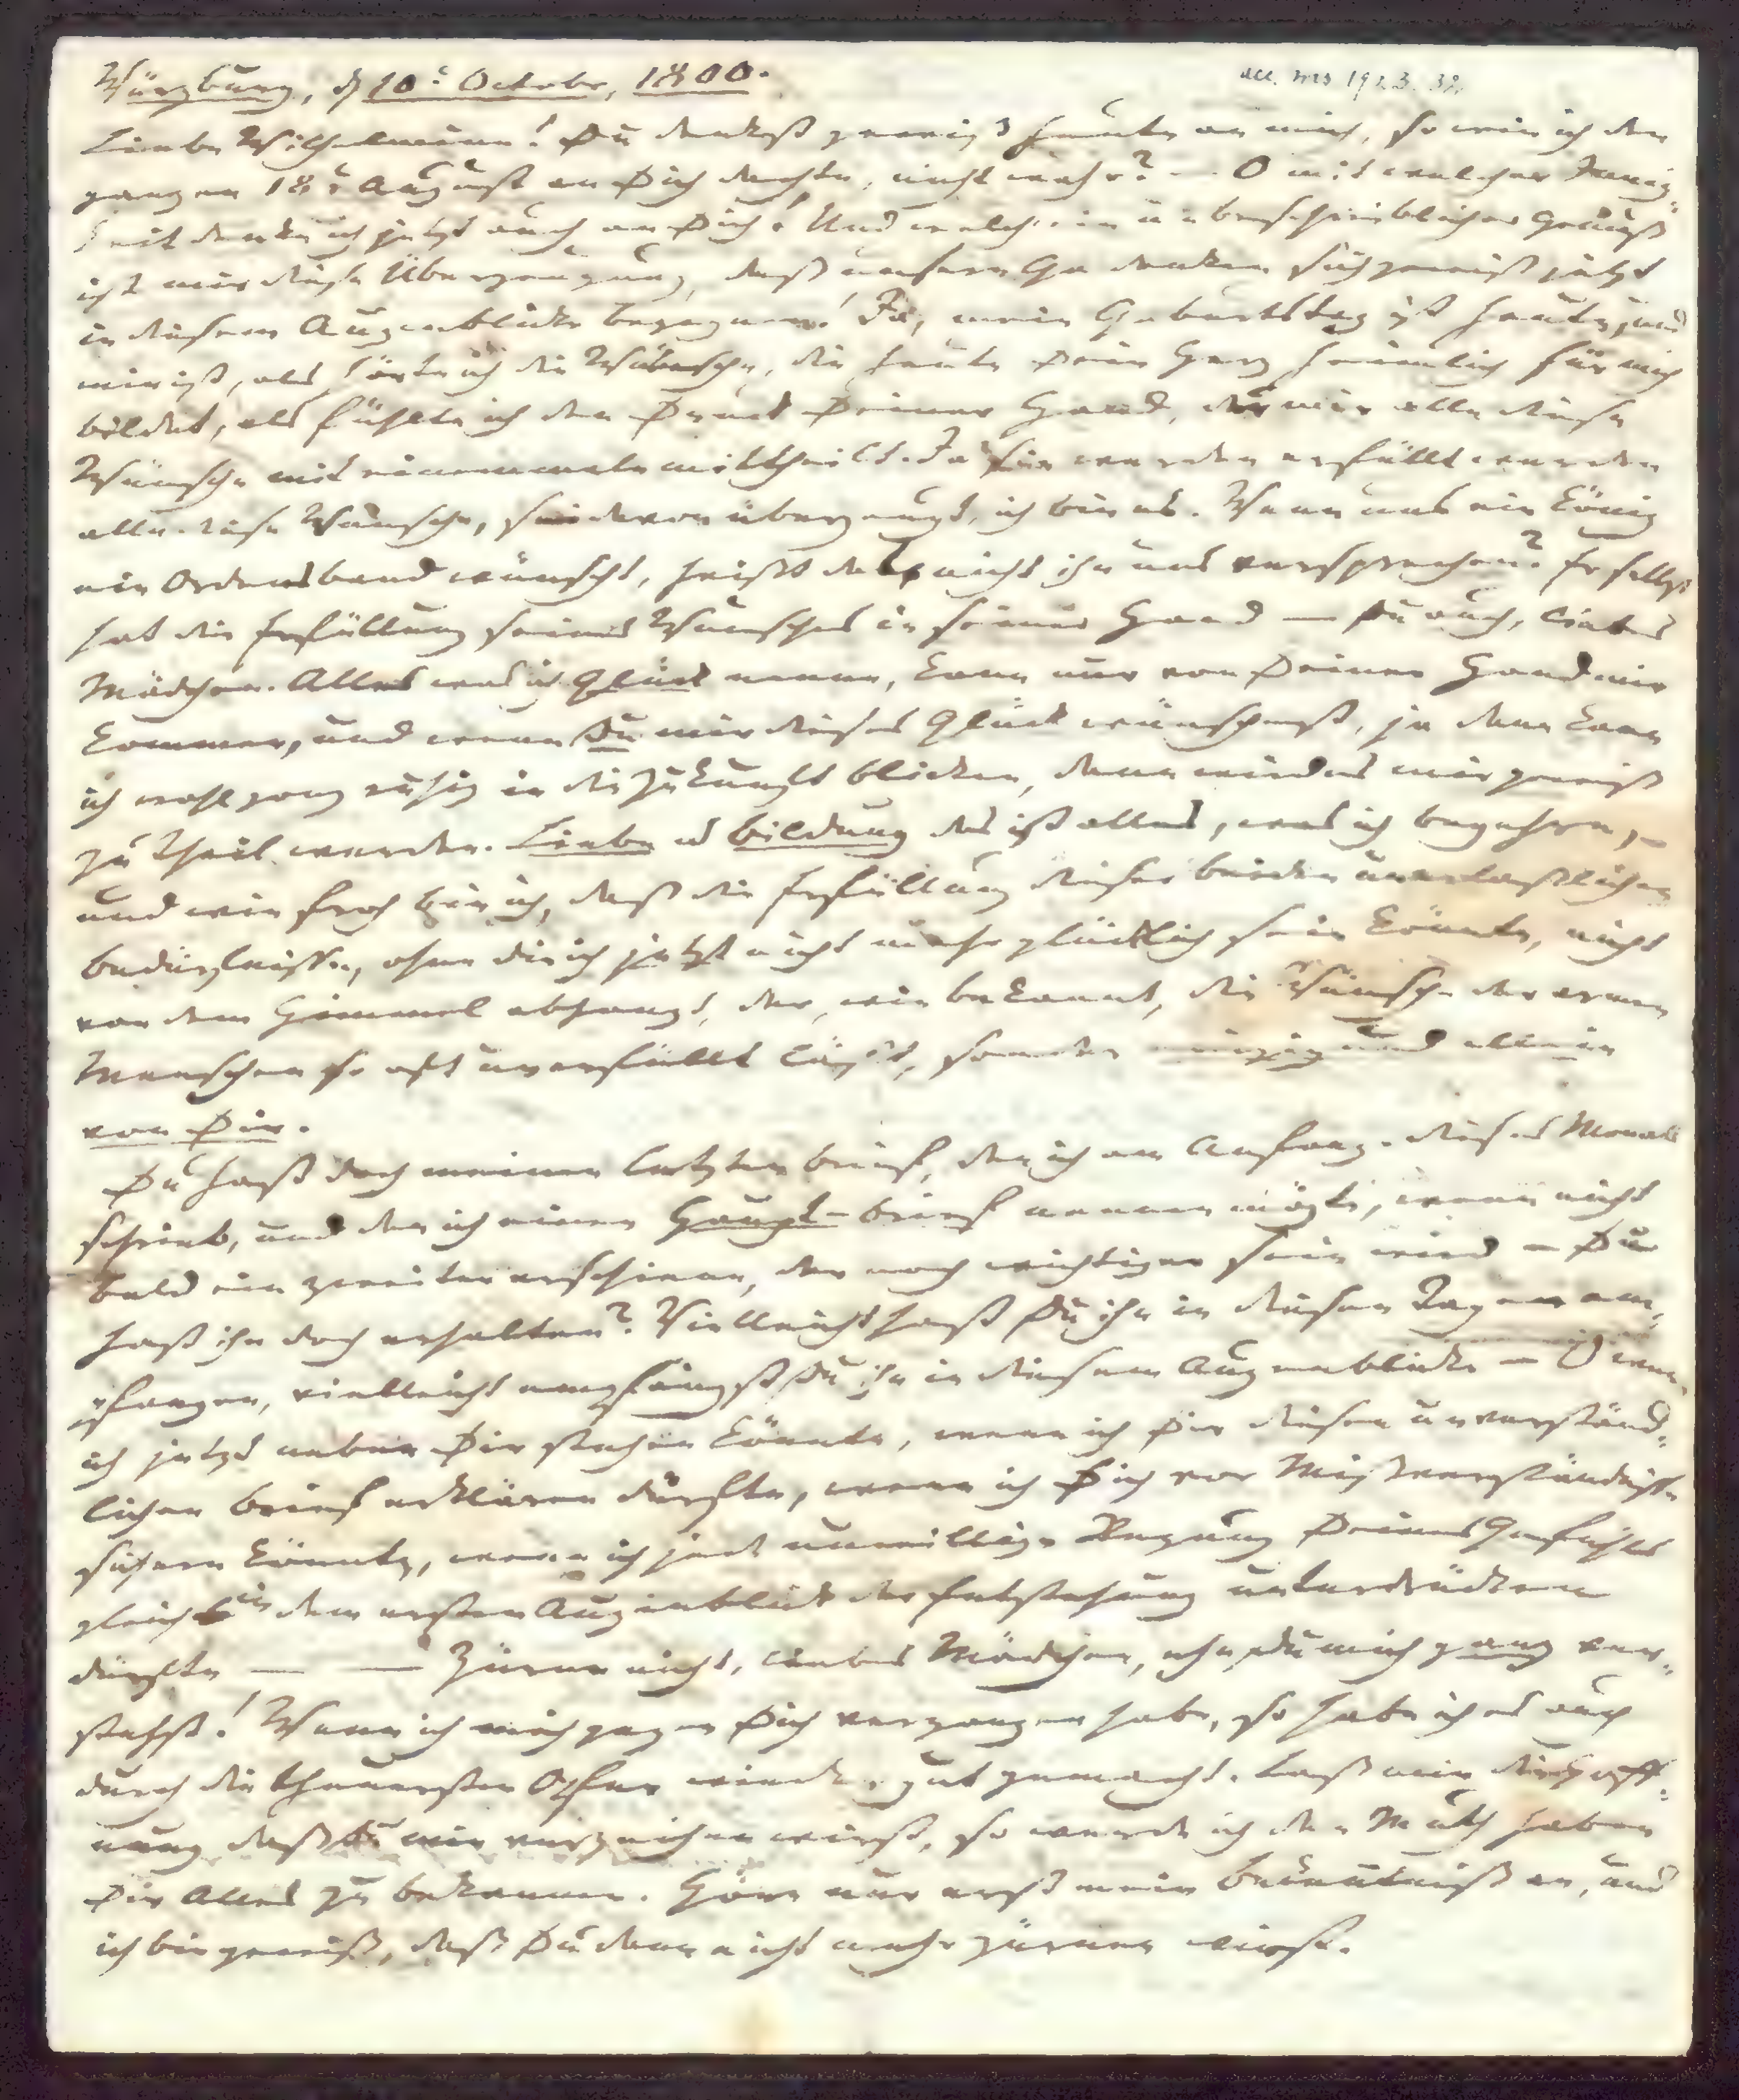 Würzburg, d 10t October, 1800.
acc. ms 1923. 32.
Liebe Wilhelmine! Du denkst gewiß heute an mich, so wie ich den
ganzen 18t August an Dich dachte, nicht wahr? — O mit welcher Innig-
keit denke ich jetzt auch an Dich! Und welch ein unbeschreiblicher Genuß
ist mir diese Überzeugung, daß unsere Gedanken sich gewiß jetzt
in diesem Augenblicke begegnen! Ja, mein Geburtstag ist heute, und
mir ist, als hörte ich die Wünsche, die heute Dein Herz heimlich für mich
bildet, als fühlte ich den Druck Deiner Hand, der mir alle diese
Wünsche mit einemmale mittheilt. Ja sie werden erfüllt werden
alle diese Wünsche, sei davon überzeugt, ich bin es. Wenn uns ein König
ein Ordensband wünscht, heißt das nicht ihn uns versprechen? Er selbst
hat die Erfüllung seines Wunsches in seiner Hand — Du auch, liebes
Mädchen. Alles was ich Glück nenne, kann nur von Deiner Hand mir
kommen, und wenn Du mir dieses Glück wünschest, ja dann kann
ich wohl ganz ruhig in die Zukunft blicken, dann wird es mir gewiß
zu Theil werden. Liebe u Bildung das ist alles, was ich begehre, —
und wie froh bin ich, daß die Erfüllung dieser beiden unerlaßlichen
Bedürfnisse, ohne die ich jetzt nicht mehr glücklich sein könnte, nicht
von dem Himmel abhangt, der, wie bekannt, die Wünsche der armen
Menschen so oft unerfüllt läßt, sondern einzig und allein
von Dir.
Du hast doch meinen letzten Brief, den ich am Anfang dieses Monats
schrieb, und den ich einen Haupt-brief nennen mögte, wenn nicht
bald ein zweiter erschiene, der noch wichtiger sein wird — Du
hast ihn doch erhalten? Vielleicht hast Du ihn in diesen Tagen em-
pfangen, vielleicht empfängst Du ihn in diesem Augenblicke — O wenn
ich jetzt neben Dir stehen könnte, wenn ich Dir diesen unverständ-
lichen Brief erklären dürfte, wenn ich Dich vor Mißverständnisse
sichern könnte, wenn ich jede unwillige Regung Deines Gefühls
gleich in dem ersten Augenblick der Entstehung unterdrücken
dürfte — — Zürne nicht, liebes Mädchen, ehe Du mich ganz ver-
stehst! Wenn ich mich gegen Dich vergangen habe, so habe ich es auch
durch die theuersten Opfer wieder gut gemacht. Laß mir die Hoff-
nung daß Du mir verzeihen wirst, so werde ich den Muth haben
Dir Alles zu bekennen. Höre nur erst mein Bekenntniß an, und
ich bin gewiß, daß Du dann nicht mehr zürnen wirst.